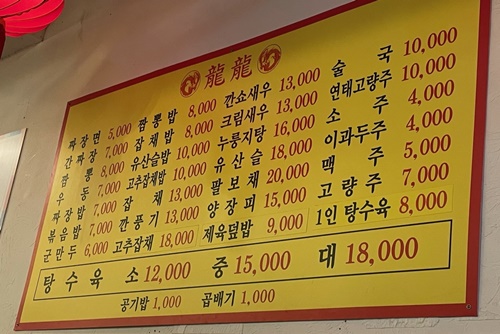 龍龍
짜장면 5,000 짬뽕밥 8,000 깐쇼새우 13,000 술국 10,000
간짜장 7,000 잡채밥 8,000 크림새우 13,000 연태고량주 10,000
짬뽕 8,000 유산슬밥 10,000 누룽지탕 16,000 소주 4,000
우동 7,000 고추잡채밥 10,000 유산슬 18,000 이과두주 4,000
짜장밥 7,000 잡채 13,000 팔보채 20,000 맥주 5,000
볶음밥 7,000 깐풍기 13,000 양장피 15,000 고량주 7,000
군만두 6,000 고추잡채 18,000 제육덮밥 9,000 1인 탕수육 8,000
탕수육 소 12,000 중 15,000 대 18,000
공기밥 1,000 곱배기 1,000